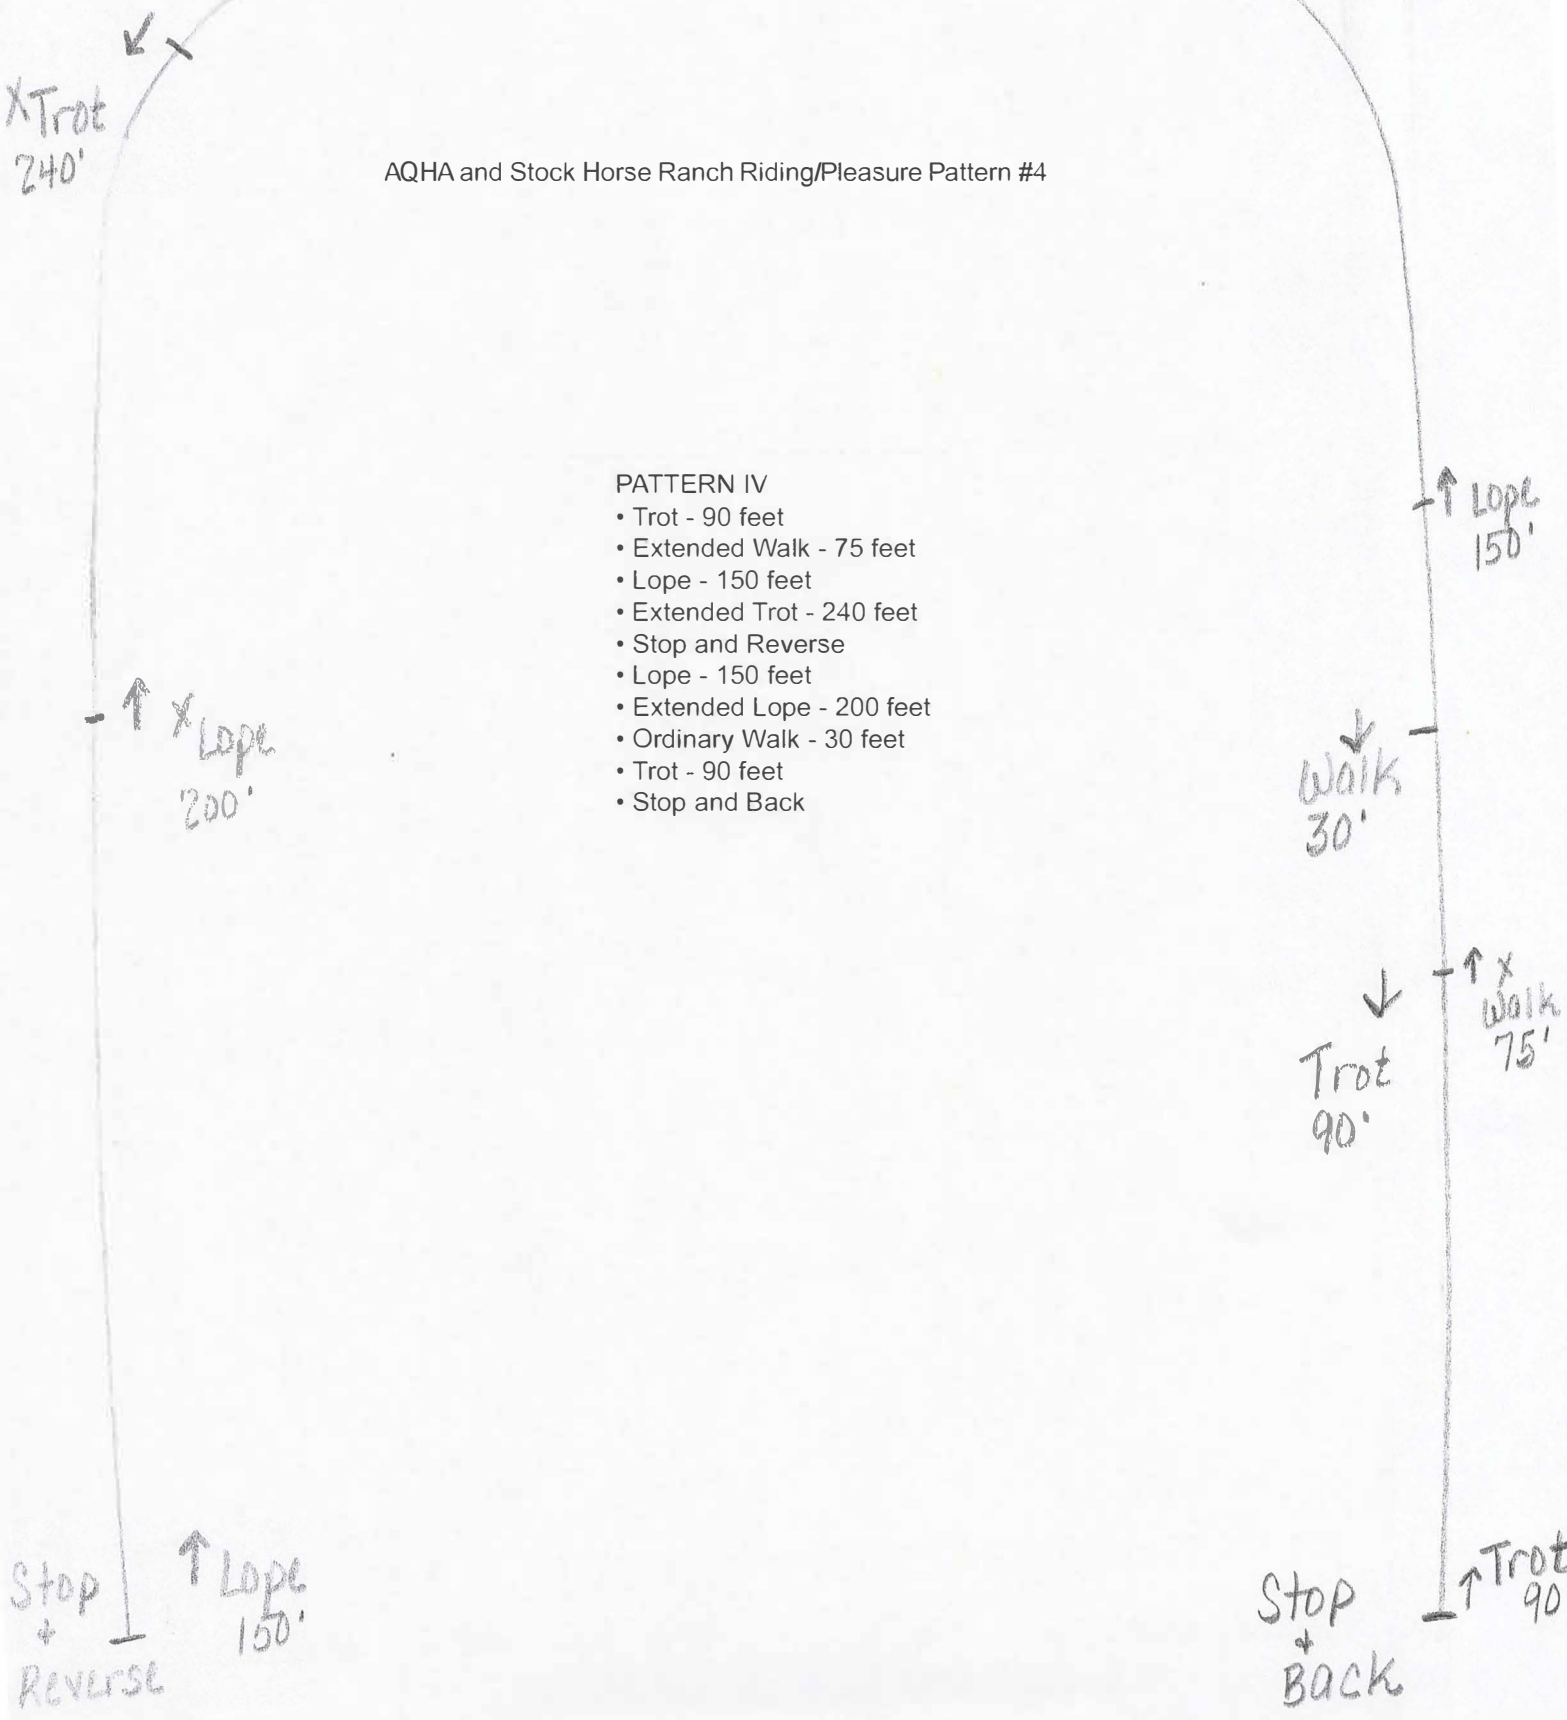 X Trot
240'
AQHA and Stock Horse Ranch Riding/Pleasure Pattern #4
PATTERN IV
• Trot - 90 feet
• Extended Walk - 75 feet
• Lope - 150 feet
• Extended Trot - 240 feet
• Stop and Reverse
• Lope - 150 feet
• Extended Lope - 200 feet
• Ordinary Walk - 30 feet
• Trot - 90 feet
• Stop and Back
Lope
150'
X Lope
200'
Walk
30'
X
Walk
75'
Trot
90'
Stop
+
Reverse
Lope
150'
Stop
+
Back
Trot
90